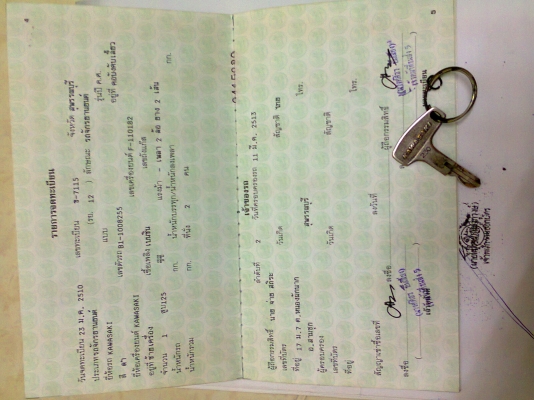 รายการจดทะเบียน
วันจดทะเบียน 23 ม.ค. 2510 เลขทะเบียน ช-7115 จังหวัด สุพรรณบุรี
ประเภท รถจักรยานยนต์ (รย. 12 ) ลักษณะ รถจักรยานยนต์
ยี่ห้อรถ KAWASAKI แบบ รุ่นปี ค.ศ.
สี ดำ เลขตัวรถ B1-1008255 อยู่ที่
ยี่ห้อเครื่องยนต์ KAWASAKI เลขเครื่องยนต์ F-110182
อยู่ที่ ข้างเครื่อง เชื้อเพลิง เบนซิน เลขถังแก๊ส
จำนวน 1 สูบ 125 ซีซี แรงม้า - เพลา 2 ล้อ ยาง 2 เส้น
น้ำหนักรถ กก. น้ำหนักบรรทุก/น้ำหนักลงเพลา กก.
น้ำหนักรวม กก. ที่นั่ง 2 คน
เจ้าของรถ
ลำดับที่ 2 วันที่ครอบครองรถ 11 มี.ค. 2513
ผู้ถือกรรมสิทธิ์ นาย
เลขที่บัตร วันเกิด สัญชาติ ไทย
ที่อยู่ 17 ม.7 ต.หนองผักนาก
อ.สามชุก สุพรรณบุรี โทร.
ผู้ครอบครอง
เลขที่บัตร วันเกิด สัญชาติ
ที่อยู่ โทร.
สัญญาเช่าซื้อเลขที่ ลงวันที่ ผู้ถือกรรมสิทธิ์
ลงชื่อ ลงชื่อ
KAWASAKI